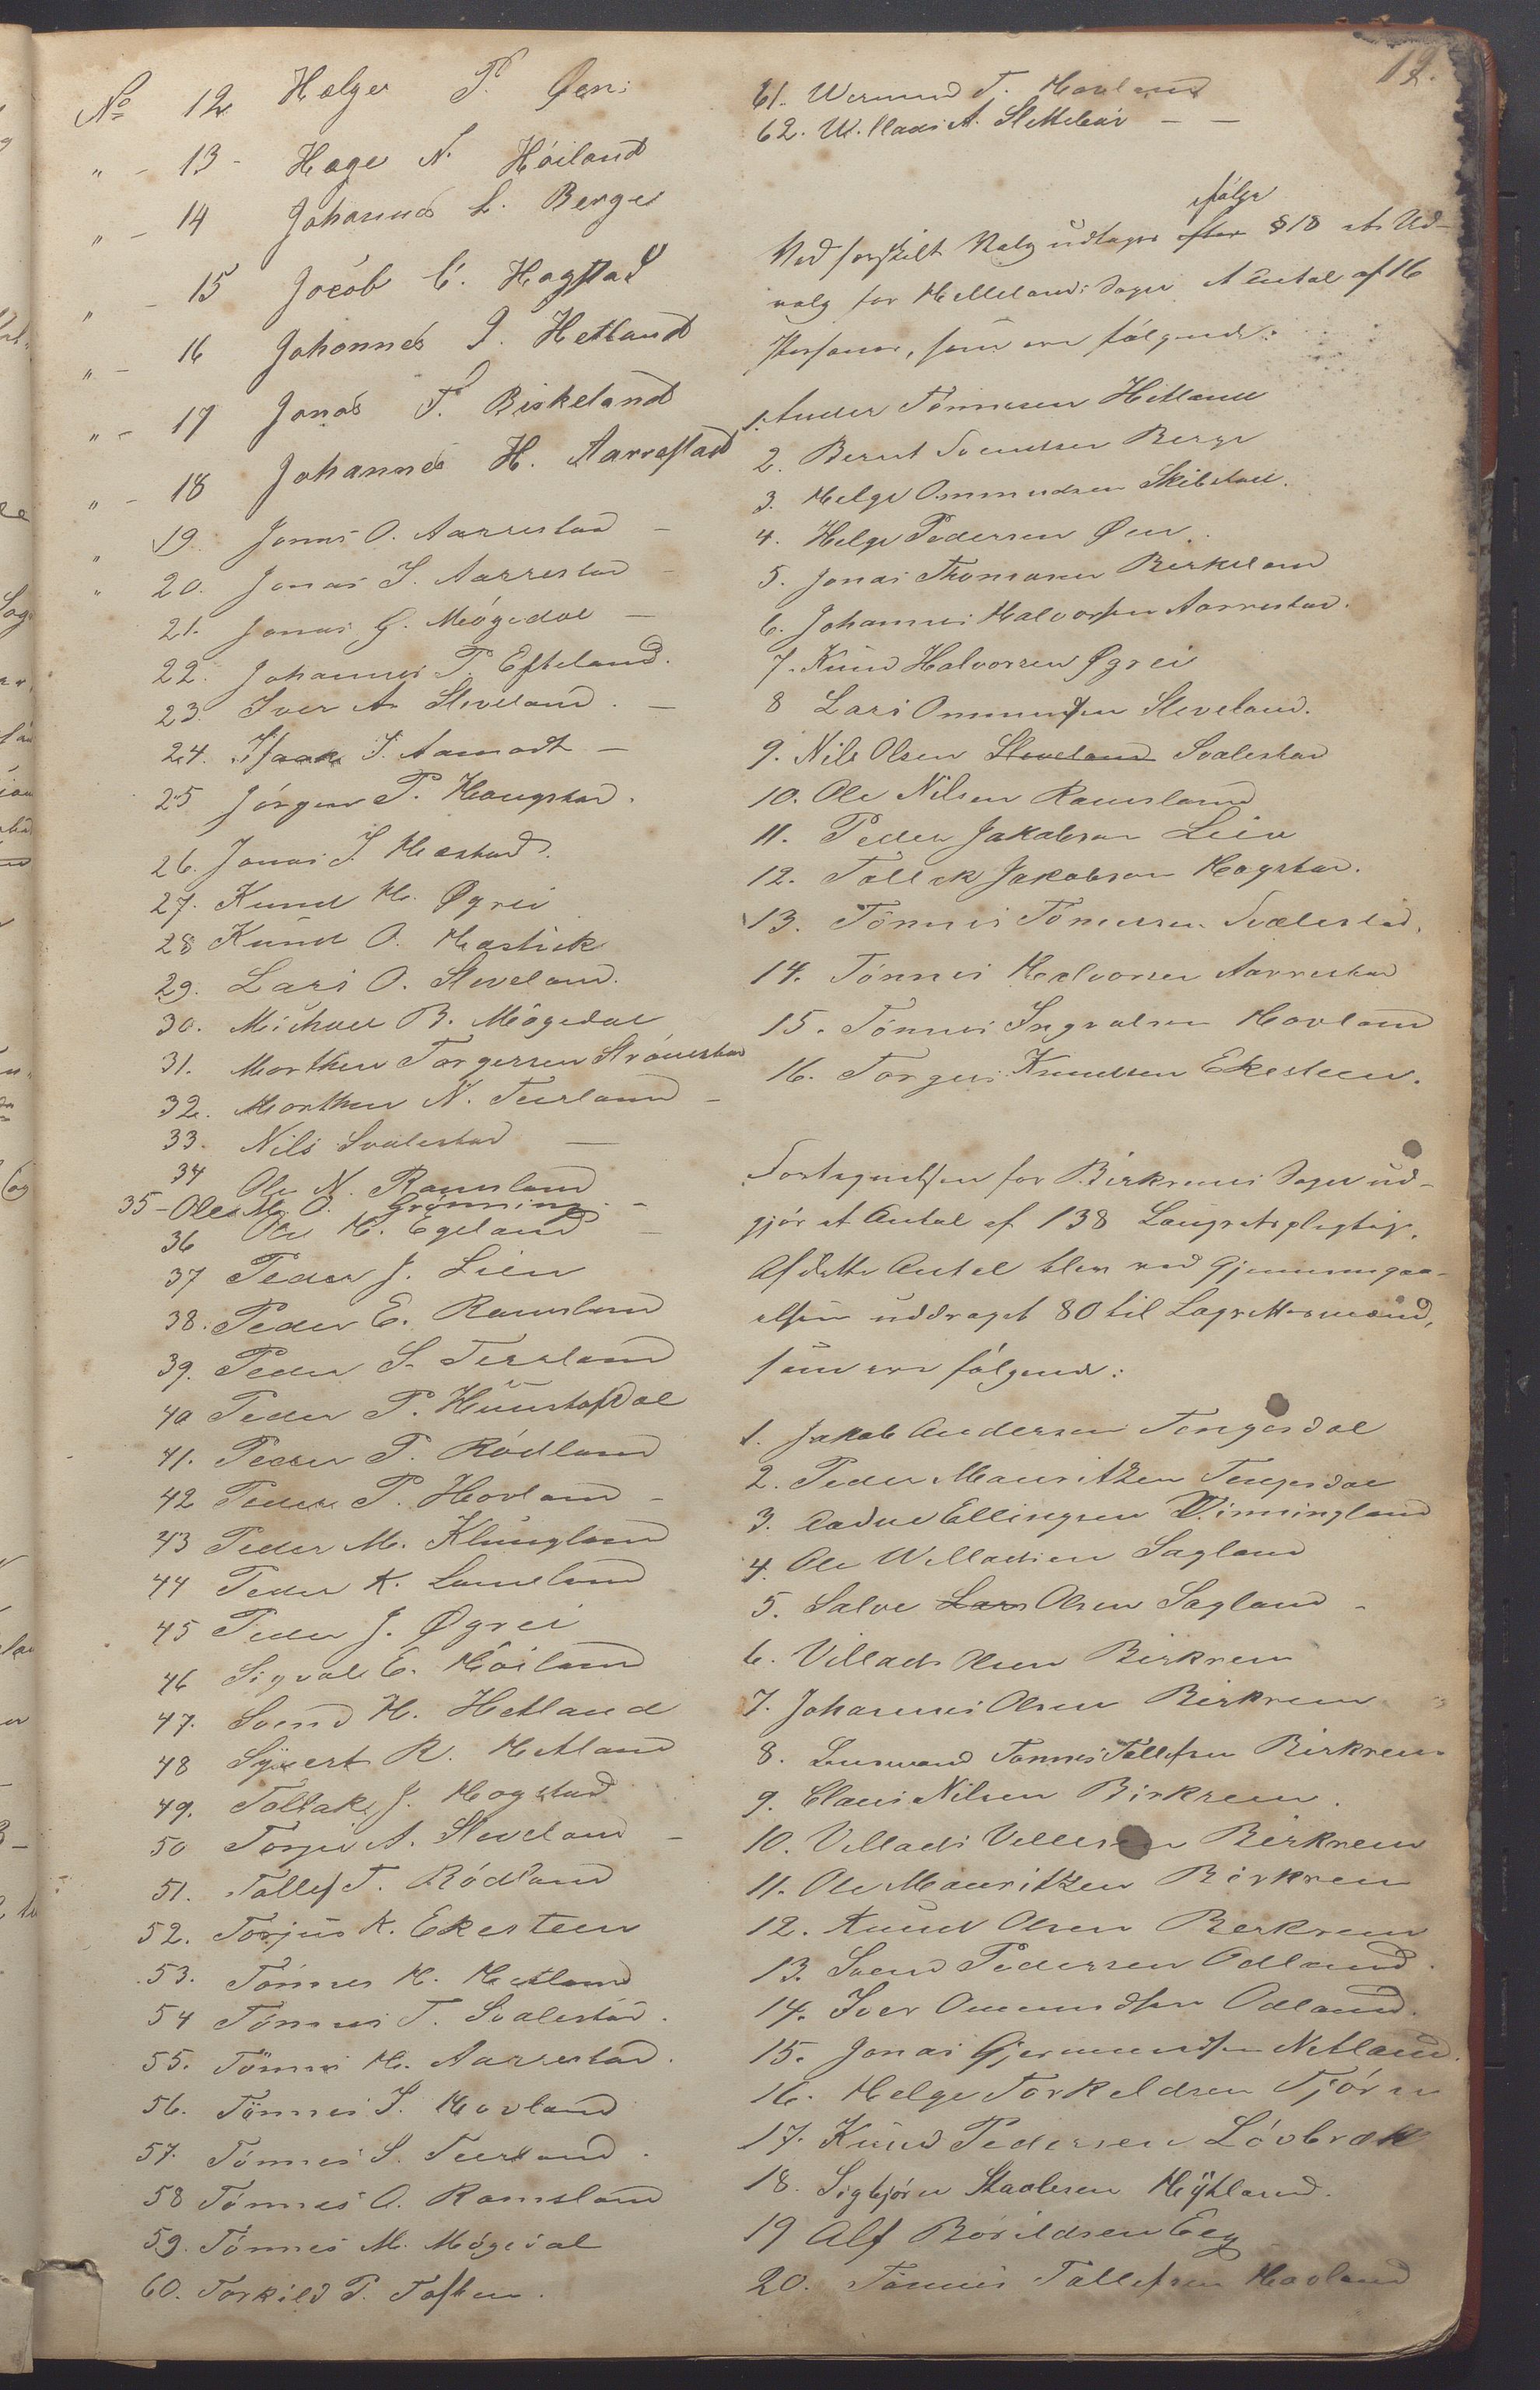 12.
No 12 Helge P. Øen
" - 13 - Hage N. Höiland
" - 14 Johannes L. Berge
" - 15 Jocob C. Hogstad
" - 16 Johonnes J. Hetland
" - 17 Jonas T. Birkeland
" - 18 Johannes H. Aarrestad
" 19. Jonas O. Aarrestad -
" 20. Jonas I. Aarrestad -
21. Jonas G. Mögedal -
22. Johannes P. Efteland.
23. Iver A. Sleveland. -
24. Isaak I. Aamodt -
25 Jörgen P. Haugstad.
26. Jonas I. Hæstad.
27. Knud H. Øgrei
28 Knud O. Hæstiek
29. Lars O. Sleveland.
30. Michael B. Mögedal
31. Morthen Torgersen Strömstad
32. Morthen N. Terland -
33. Nils Svalestad -
34 Ole N. Ramsland
35 - Ole M. O. Grönning -
36 Ole H. Egeland -
37 Peder J. Lien
38. Peder E. Ramsland
39. Peder S. Terland
40 Peder P. Hunstofdal
41. Peder P. Rödland
42 Peder P. Hovland -
43 Peder M. Klungland
44 Peder K. Lomeland
45 Peder J. Øgrei
46 Sigvald E. Höiland
47. Svend H. Hetland
48 Syvert R. Hetland
49. Tollak J. Hogstad
50 Torger A. Sleveland -
51. Tollef T. Rödland
52. Torjus K. Ekesteen
53. Tönnes H. Hetland
54 Tönnes T. Svalestad.
55. Tönnes H. Aarrestad.
56. Tönnes I. Hovland
57. Tönnes S. Terland.
58 Tönnes O. Ramsland
59. Tönnes M. Mögedal
60. Torkild P. Toften.
61. Wermund T. Hovland
62. Willads A. Slettebö - -
Ved særskilt Valg udtages efter ifølge § 18 et Ud-
valg for Hellelands Sogn et Antal af 16
Personer, som ere følgende:
1. Ander Tönnesen Hetland
2. Bernt Svendsen Berge
3. Helge Ommundsen Skibstad.
4. Helge Pedersen Øen.
5. Jonas Thomasen Birkeland
6. Johannes Halvorsen Aarrestad.
7. Knud Halvorsen Øgrei
8 Lars Ommundsen Sleveland.
9. Nils Olsen Sleveland Svalestad
10. Ole Nilsen Ramsland
11. Peder Jakobsen Lien
12. Tollak Jakobsen Hogstad.
13. Tönnes Tönnessen Svalestad.
14. Tönnes Halvorsen Aarrestad
15. Tönnes Ingvalsen Hovland
16. Torges Knudsen Ekesteen.
Fortegnelsen for Birkrems Sogn ud-
gjør et Antal af 138 Laugretspligtige.
Af dette Antal blev ved Gjennemgaa-
elsen uddraget 80 til Lagrettesmænd,
som ere følgende:
1. Jakob Andersen Tengesdal
2. Peder Mauritzen Tengesdal
3. Ellingsen Vinningland
4. Ole Willadsen Sagland
5. Salve Lars Olsen Sagland -
6. Villads Olsen Birkrem
7. Johannes Olsen Birkrem
8. Lensmand Tönnes Tollefsen Birkrem
9. Claus Nilsen Birkrem.
10. Villads Villadsen Birkrem
11. Ole Mauritzen Birkrem
12. Knud Olsen Birkrem
13. Svend Pedersen Odland.
14. Iver Ommundsen Odland.
15. Jonas Gjermundsen Netland.
16. Helge Torkeldsen Tjörn
17. Knud Pedersen Lövbræk
18. Sigbjörn Staalesen Hytland.
19 Alf Borildsen Eeg
20. Tönnes Tollefsen Hovland